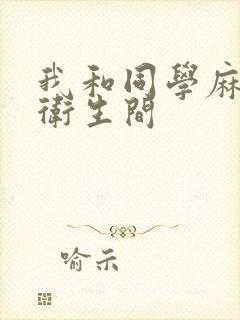 我和同學麻
衛生間
喻示